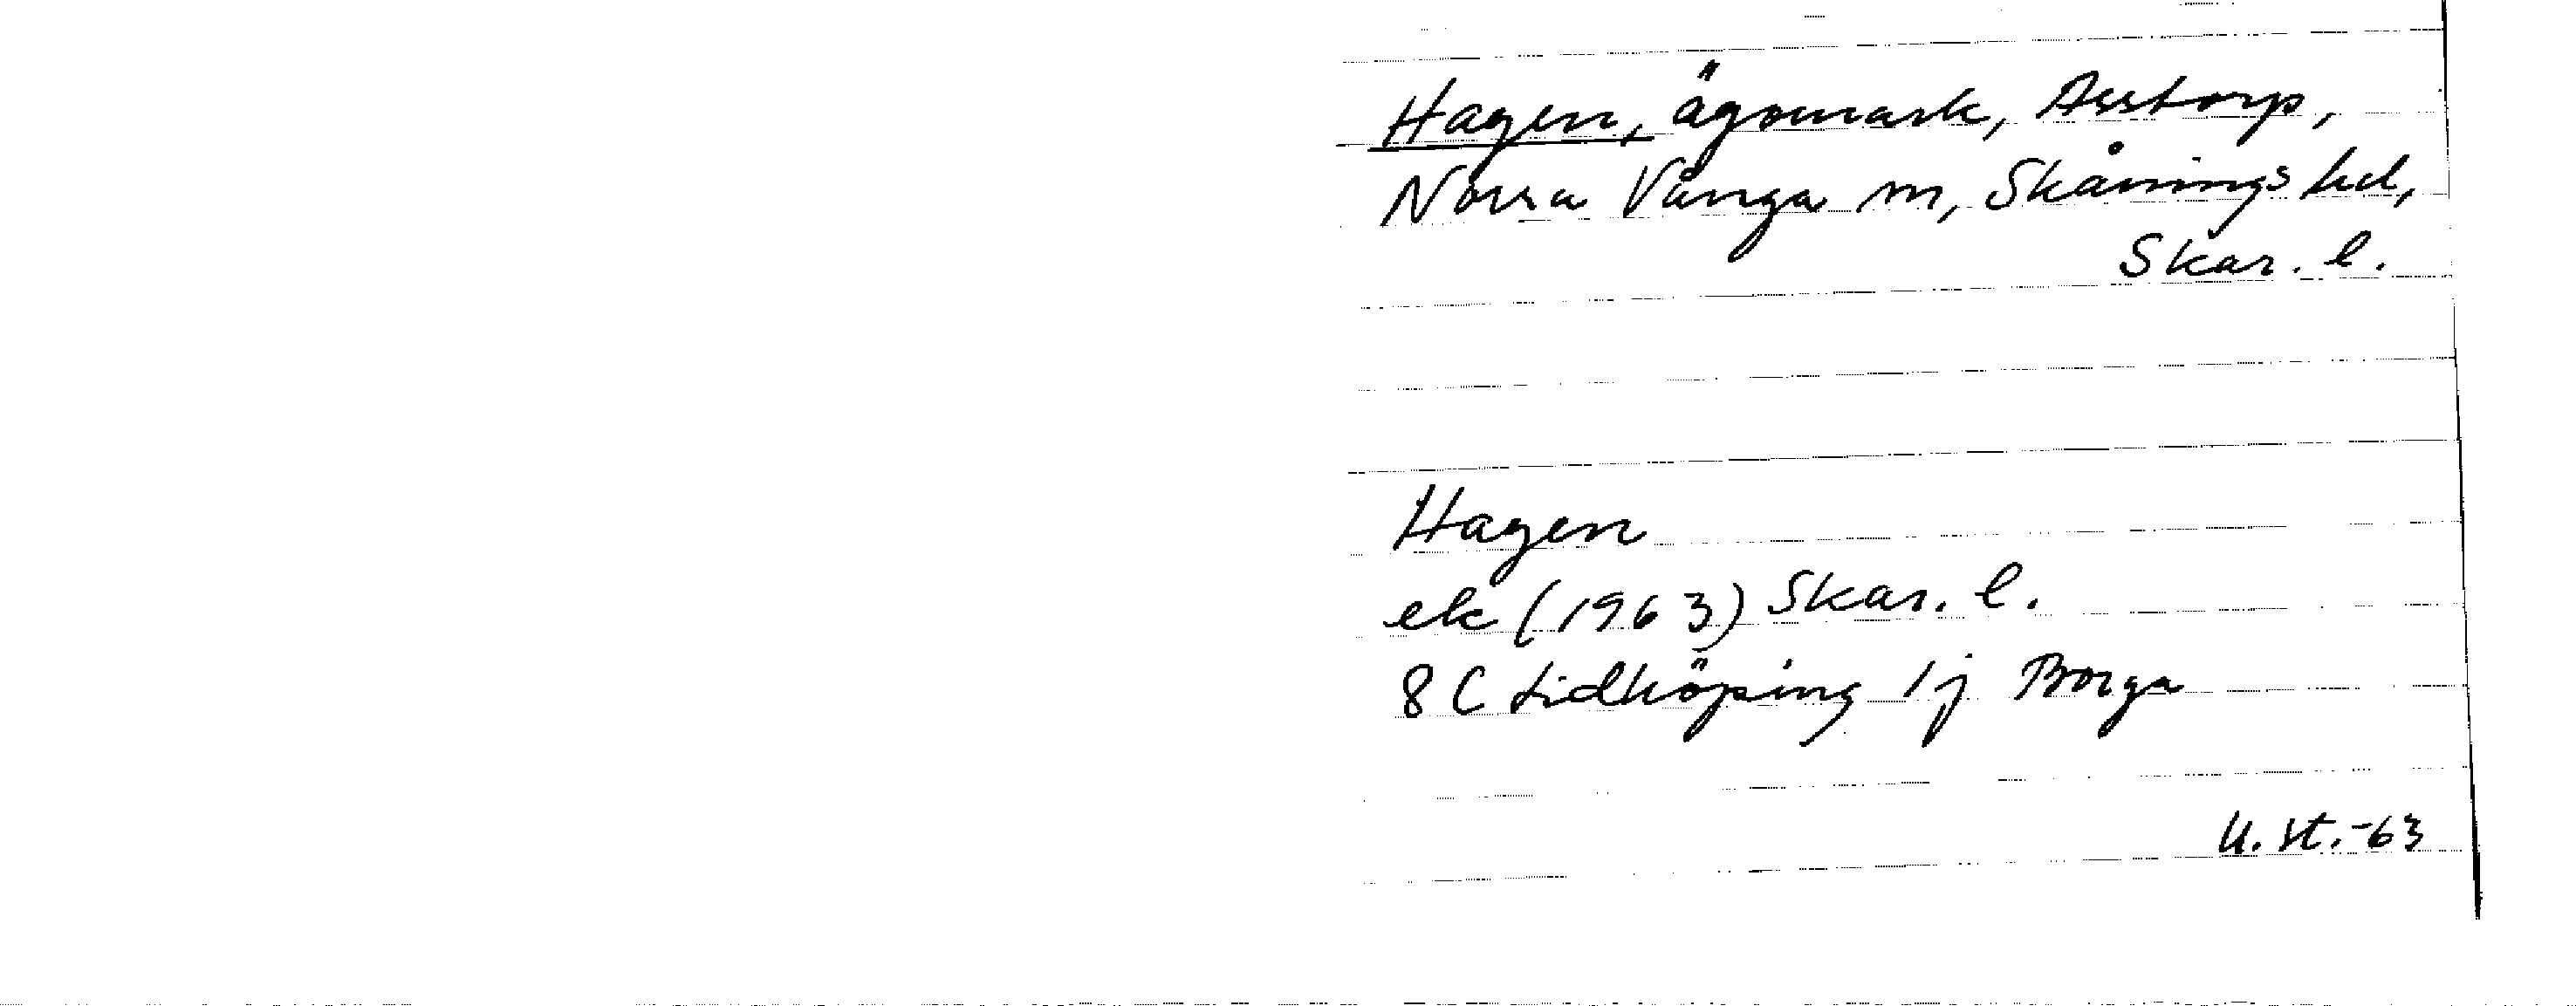 Hagen, ägomark, Asstorp,
Norra Vånga sn, Skånings hd,
Skar. l.
Hagen
ek (1963) Skar. l.
8 C Lidköping 1j Borga
U. st. -63